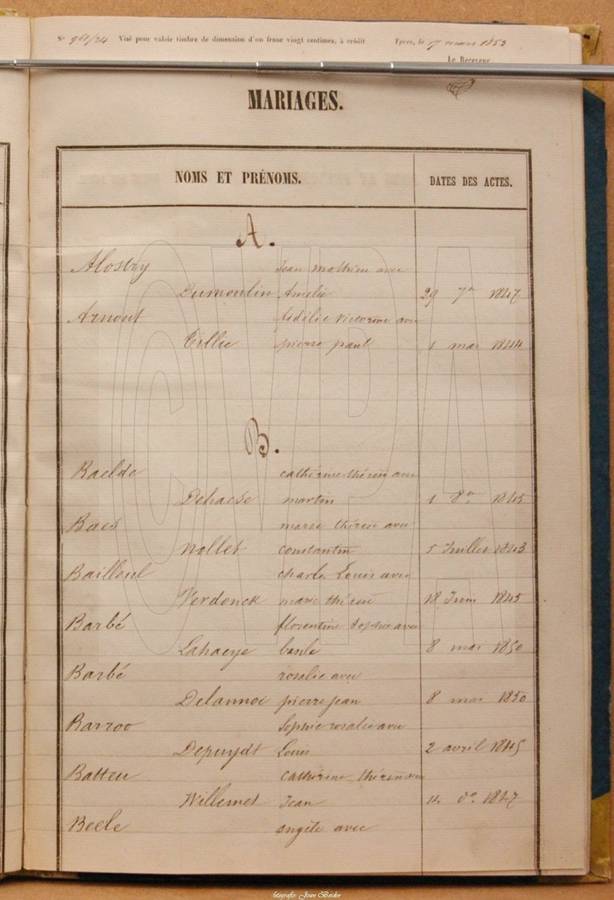 N° 941/24 Visé pour valoir timbre de dimension d'un franc vingt centimes, à crédit Ypres, le 17 mars 1853
Le Receveur
MARIAGES.
NOMS ET PRÉNOMS. DATES DES ACTES.
A.
Alostry Jean mathieu avec
Dumoulin Amelie 29 7re 1847
Arnout fidélie victorine avec
Tillie pierre paul 1 mai 1844
B.
Baelde catherine thérèse avec
Dehaese martin 1 8re 1845
Baes marie thérèse avec
Nollet constantin 5 Juillet 1843
Bailleul charles Louis avec
Verdonck marie thérèse 18 Juin 1845
Barbé florentine sophie avec
Lahaeye 8 mai 1850
Barbé rosalie avec
Delannoi pierre jean 8 mai 1850
Barroo Sophie rosalie avec
Depuydt Louis 2 avril 1845
Batteu catherine thérèse avec
Willemet Jean 1847
Beele angèle avec
CVPA
fotografie: Jean Becker